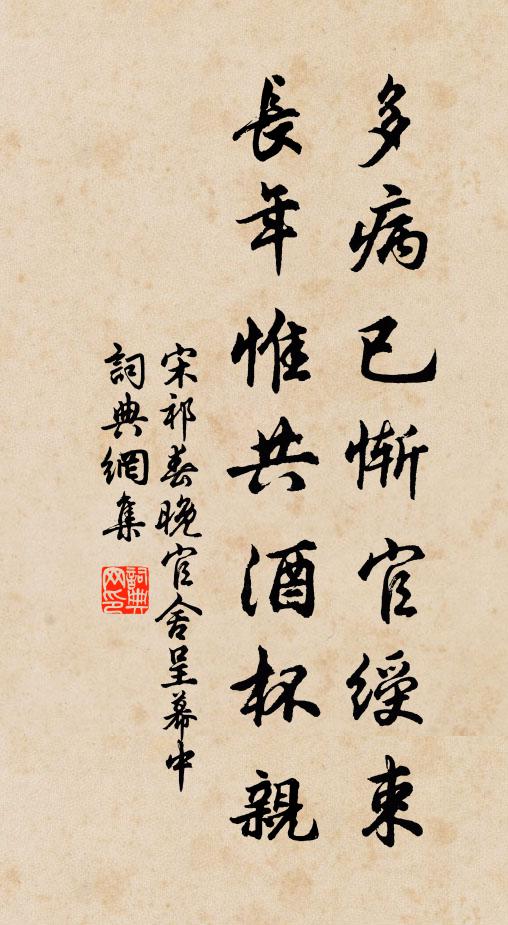 多病已慚官綬束
長年惟共酒杯親
宋祁春晚官舍呈幕中
詞典網集
詞典网印